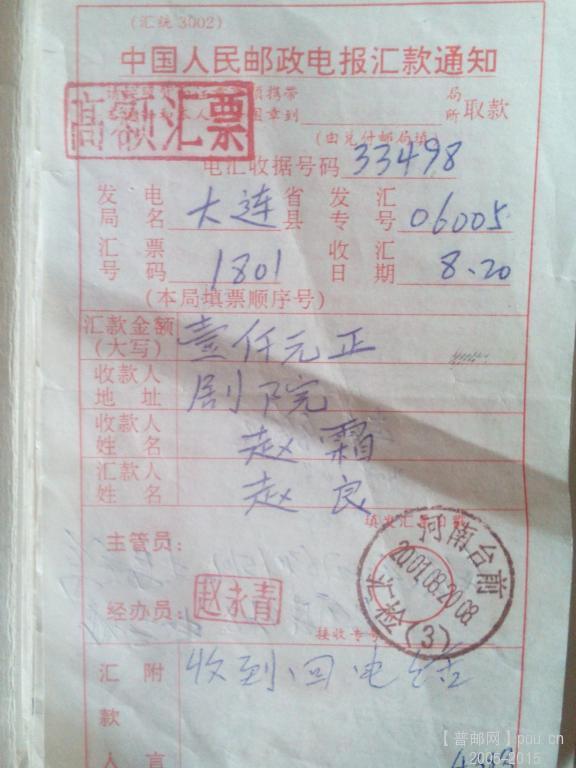 (汇统 3002)
中国人民邮政电报汇款通知
高额汇票
局
所 取款
(由兑付邮局填)
电汇收据号码 33498
发电局名 大连 省县 发汇专号 06005
汇票号码 1801 收汇日期 8.20
(本局填票顺序号)
汇款金额(大写) 壹仟元正
收款人地址 剧院
收款人姓名 赵霜
汇款人姓名 赵良
主管员:
河南台前
2001.08.20.08
(3)
经办员: 赵永青
接收专号
汇款附 收到回电
人言
【普邮网】pou.cn
2005-2015